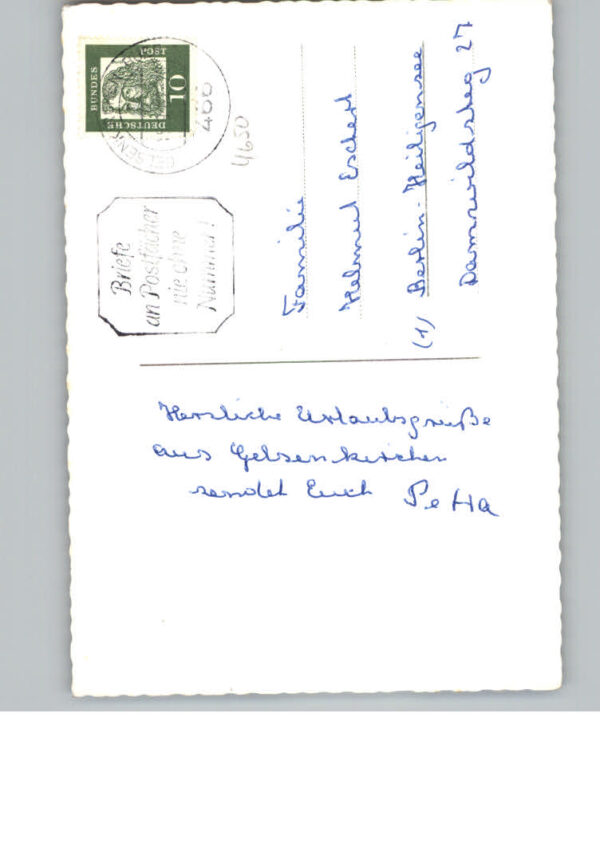 DEUTSCHE
BUNDES
POST
10
466
4650
Briefe
an Postfächer
nie ohne
Nummer!
Familie
Helmut Eschert
(1) Berlin-Heiligensee
Damwildsteg 27
Herzliche Urlaubsgrüße
aus Gelsenkirchen
sendet Euch Petra